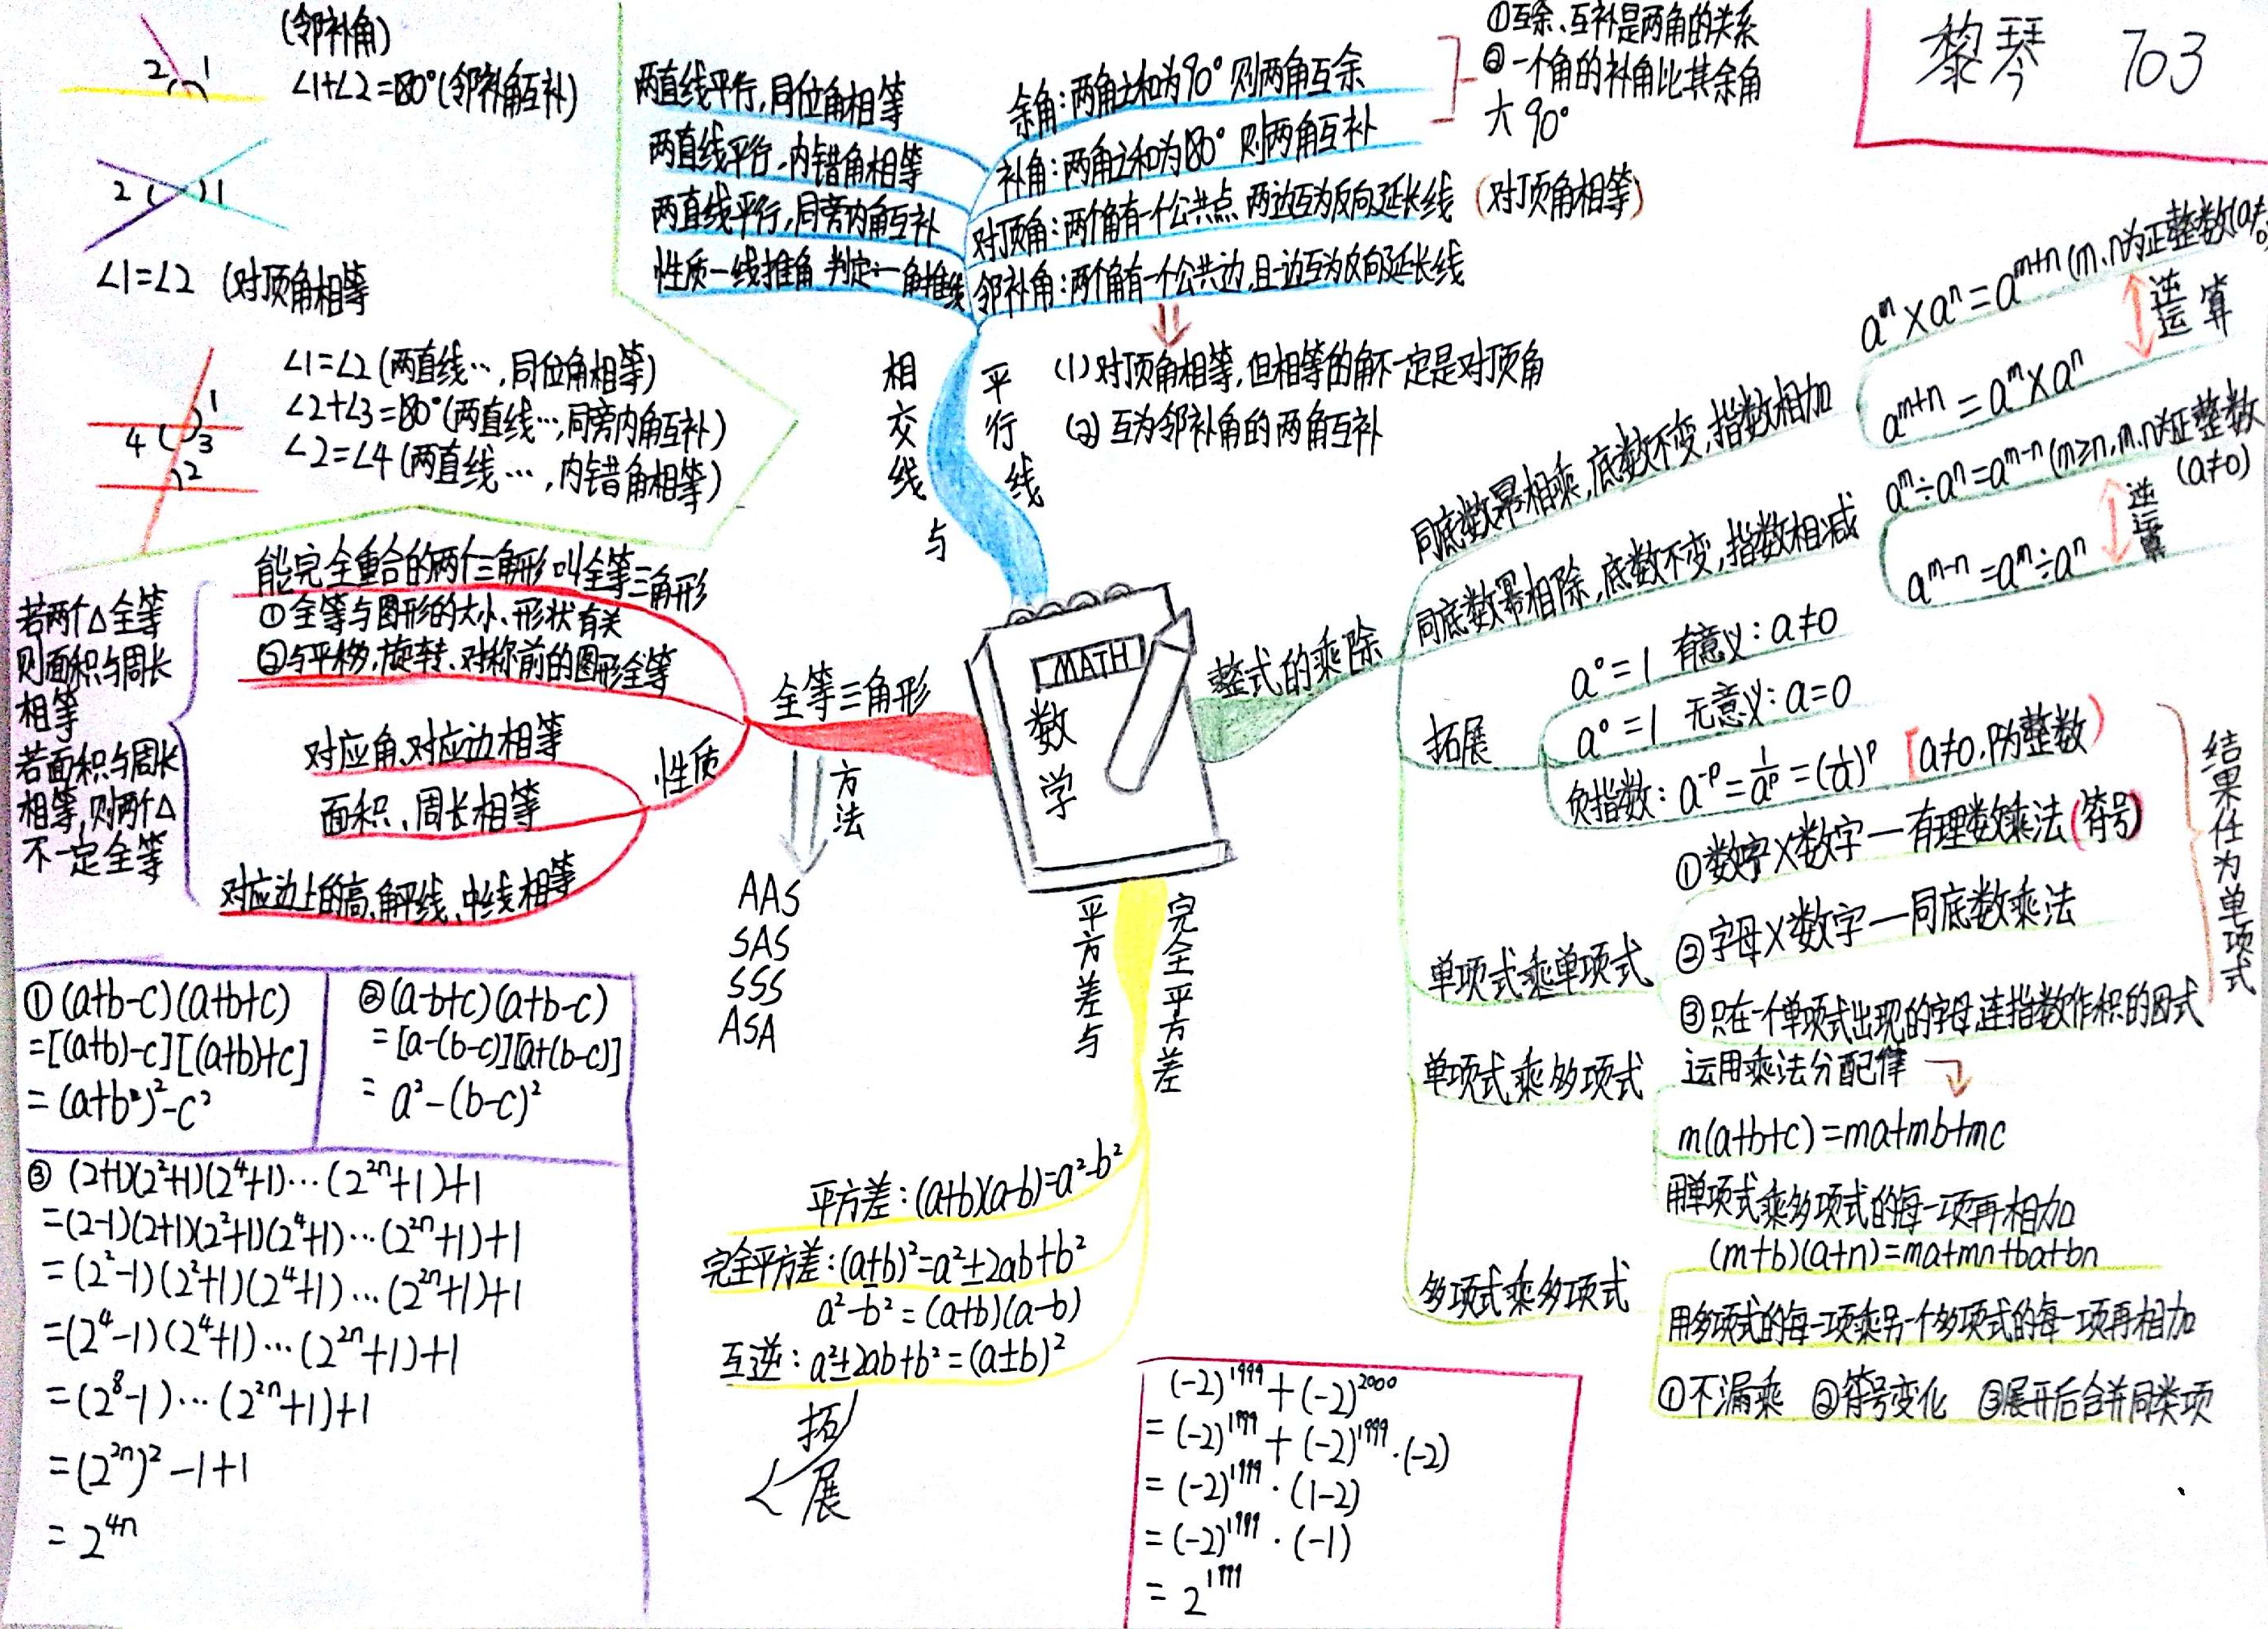 黎琴 703
(邻补角)
∠1+∠2=180°(邻补角互补)
2 1
2 1
∠1=∠2 (对顶角相等
∠1=∠2(两直线…,同位角相等)
∠2+∠3=180°(两直线…,同旁内角互补)
∠2=∠4(两直线…,内错角相等)
1
4 3
2
两直线平行,同位角相等
两直线平行,内错角相等
两直线平行,同旁内角互补
性质一线推角 判定一角推线
余角:两角之和为90°则两角互余
补角:两角之和为180°则两角互补
①互余、互补是两角的关系
②一个角的补角比其余角
大90°
对顶角:两个角有一个公共点 两边互为反向延长线 (对顶角相等)
邻补角:两个角有一个公共边,且一边互为反向延长线
(1)对顶角相等,但相等的角不一定是对顶角
(2)互为邻补角的两角互补
相交线与
平行线
MATH
数学
全等三角形
能完全重合的两个三角形叫全等三角形
①全等与图形的大小、形状有关
②与平移,旋转、对称前的图形全等
性质
对应角、对应边相等
面积、周长相等
对应边上的高、角平线、中线相等
若两个△全等
则面积与周长
相等
若面积与周长
相等,则两个△
不一定全等
方法
AAS
SAS
SSS
ASA
整式的乘除
同底数幂相乘,底数不变,指数相加
aᵐ×aⁿ=aᵐ⁺ⁿ(m.n为正整数(a≠0
逆运算
aᵐ⁺ⁿ=aᵐ×aⁿ
同底数幂相除,底数不变,指数相减
aᵐ÷aⁿ=aᵐ⁻ⁿ(m≥n,m.n为正整数
(a≠0)
逆运算
aᵐ⁻ⁿ=aᵐ÷aⁿ
拓展
a°=1 有意义:a≠0
a°=1 无意义:a=0
负指数:a⁻ᵖ=1/aᵖ=(1/a)ᵖ [a≠0.P为整数)
单项式乘单项式
①数字×数字—有理数乘法(符号)
②字母×数字—同底数乘法
③只在一个单项式出现的字母,连指数作积的因式
结果任为单项式
单项式乘多项式
运用乘法分配律
m(a+b+c)=ma+mb+mc
用单项式乘多项式的每一项再相加
多项式乘多项式
(m+b)(a+n)=ma+mn+ba+bn
用多项式的每一项乘另一个多项式的每一项再相加
①不漏乘 ②符号变化 ③展开后合并同类项
平方差与
完全平方差
平方差:(a+b)(a-b)=a²-b²
完全平方差:(a±b)²=a²±2ab+b²
a²-b²=(a+b)(a-b)
互逆:a²±2ab+b²=(a±b)²
拓展
①(a+b-c)(a+b+c)
=[(a+b)-c][(a+b)+c]
=(a+b²)²-c²
②(a-b+c)(a+b-c)
=[a-(b-c)][a+(b-c)]
=a²-(b-c)²
③(2+1)(2²+1)(2⁴+1)…(2²ⁿ+1)+1
=(2-1)(2+1)(2²+1)(2⁴+1)…(2²ⁿ+1)+1
=(2²-1)(2²+1)(2⁴+1)…(2²ⁿ+1)+1
=(2⁴-1)(2⁴+1)…(2²ⁿ+1)+1
=(2⁸-1)…(2²ⁿ+1)+1
=(2²ⁿ)²-1+1
=2⁴ⁿ
(-2)¹⁹⁹⁹+(-2)²⁰⁰⁰
=(-2)¹⁹⁹⁹+(-2)¹⁹⁹⁹·(-2)
=(-2)¹⁹⁹⁹·(1-2)
=(-2)¹⁹⁹⁹·(-1)
=2¹⁹⁹⁹